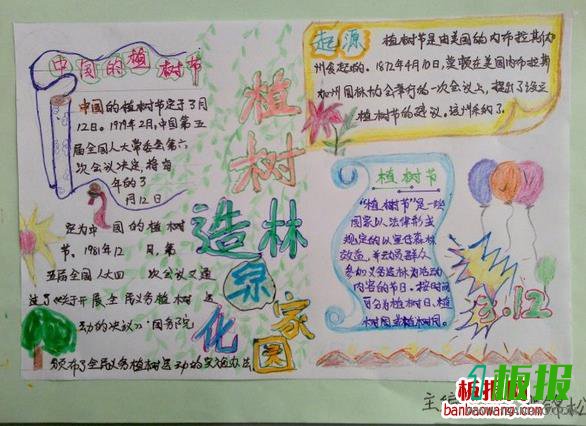 中国的植树节
中国的植树节定于3月
12日。1979年2月,中国第五
届全国人大常委会第六
次会议决定,将每
年的3
月12日
定为中国的植树
节。1981年12月,第
五届全国人大四次会议又通
过了《关于开展全民义务植树运
动的决议》。国务院
颁布了全民义务植树运动的实施办法
植树
造林
绿
化
家
园
起源
植树节是由美国的内布拉斯
州发起的。1872年4月10日,莫顿在美国内布拉斯
加州园林协会举行的一次会议上,提出了设立
植树节的建议。
植树节
"植树节"是一些
国家以法律形式
规定的以宣传森林
效益,并动员群众
参加义务造林为活动
内容的节日。按时间
可分为植树日、植
树周或植树月。
3.12
板报
板报网
banbaowang.com
主编